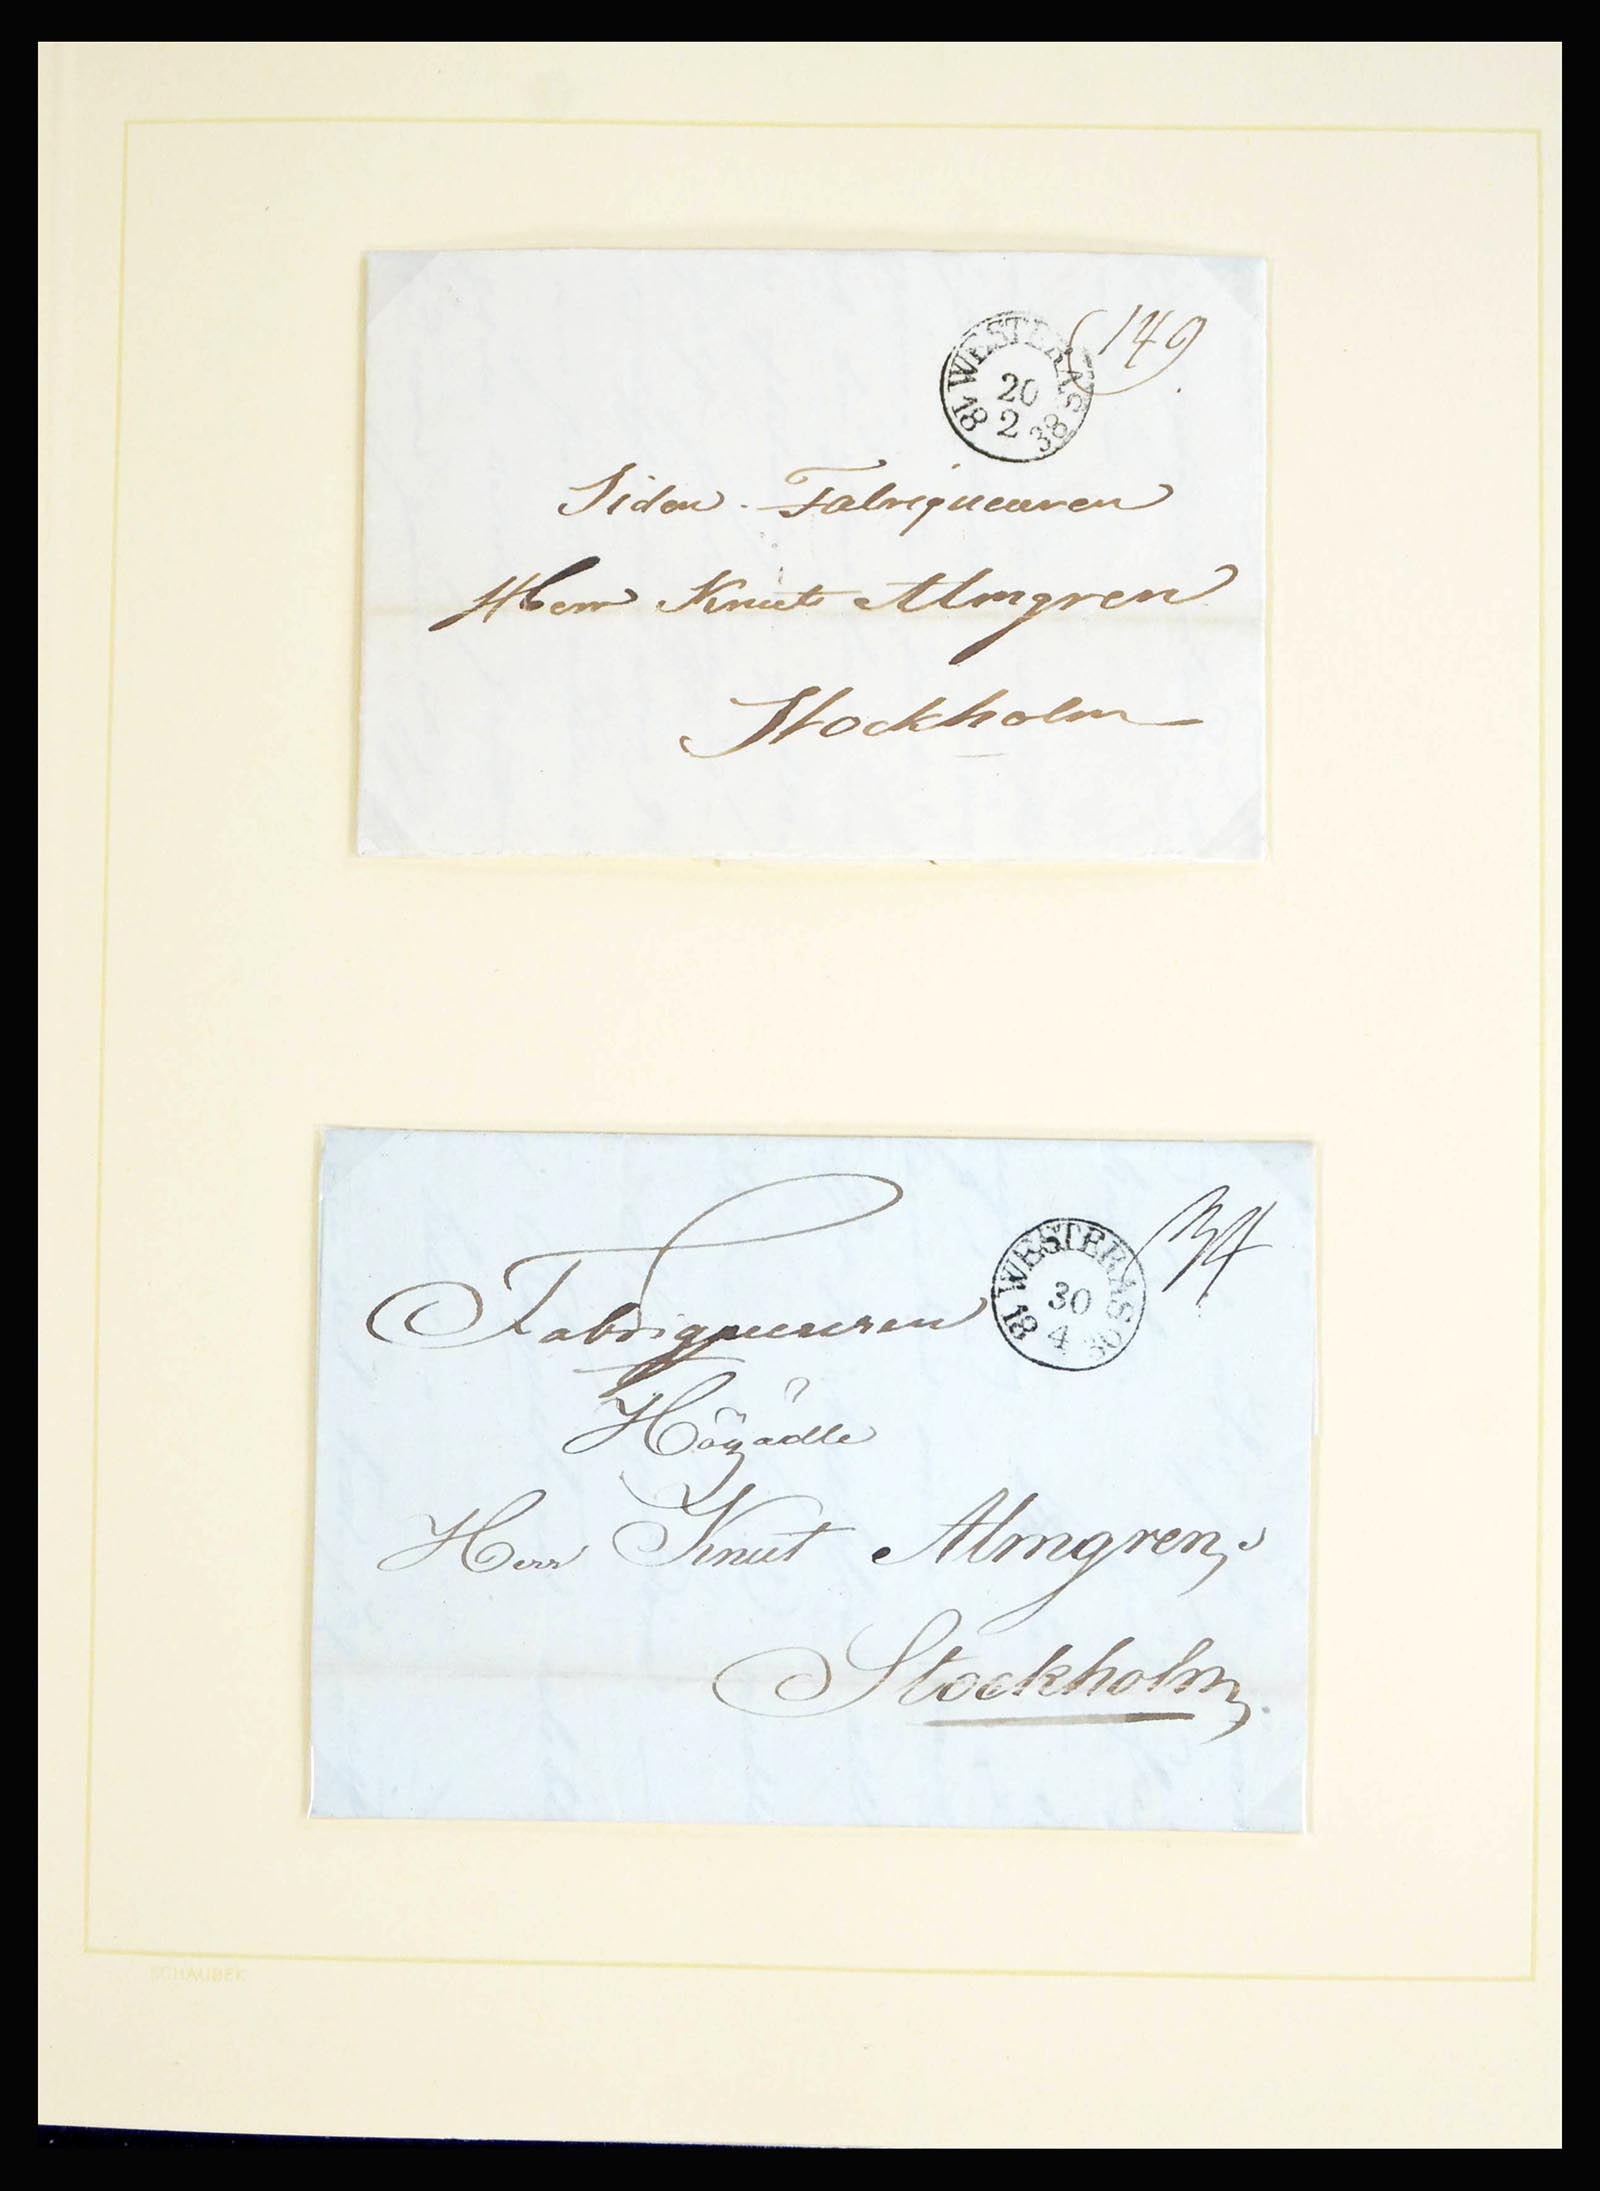 149
WESTERÅS
20
18 2 38
Siden-Fabriqueuren
Herr Knut Almgren
Stockholm
WESTERÅS
30
18 4 
Fabriqueuren
Högädle
Herr Knut Almgren,
Stockholm,
SCHAUBEK